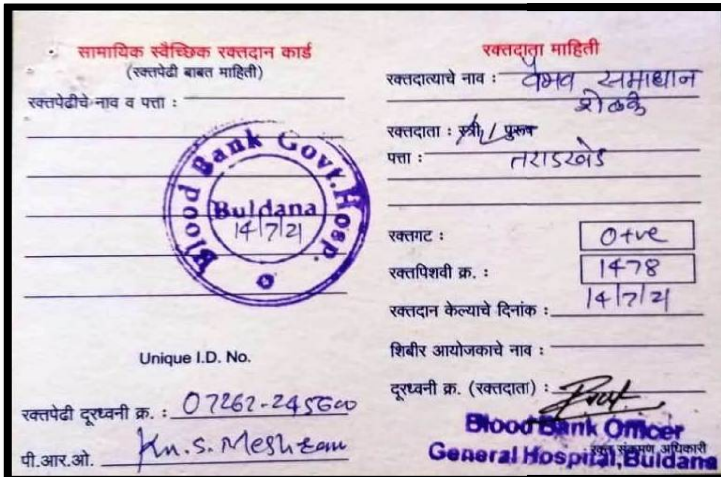 सामायिक स्वैच्छिक रक्तदान कार्ड
(रक्तपेढी बाबत माहिती)
रक्तपेढीचे नाव व पत्ता :
Blood Bank Govt. Hosp.
Buldana
14/7/21
Unique I.D. No.
रक्तपेढी दूरध्वनी क्र. : 07262-245600
पी.आर.ओ. Kn. S. Meshram
रक्तदाता माहिती
रक्तदात्याचे नाव : वैभव समाधान
शेळके
रक्तदाता : स्त्री / पुरूष
पत्ता : तराडखेड
रक्तगट : O+ve
रक्तपिशवी क्र. : 1478
रक्तदान केल्याचे दिनांक : 14/7/21
शिबीर आयोजकाचे नाव :
दूरध्वनी क्र. (रक्तदाता) :
Blood Bank Officer
रक्त संक्रमण अधिकारी
General Hospital, Buldana